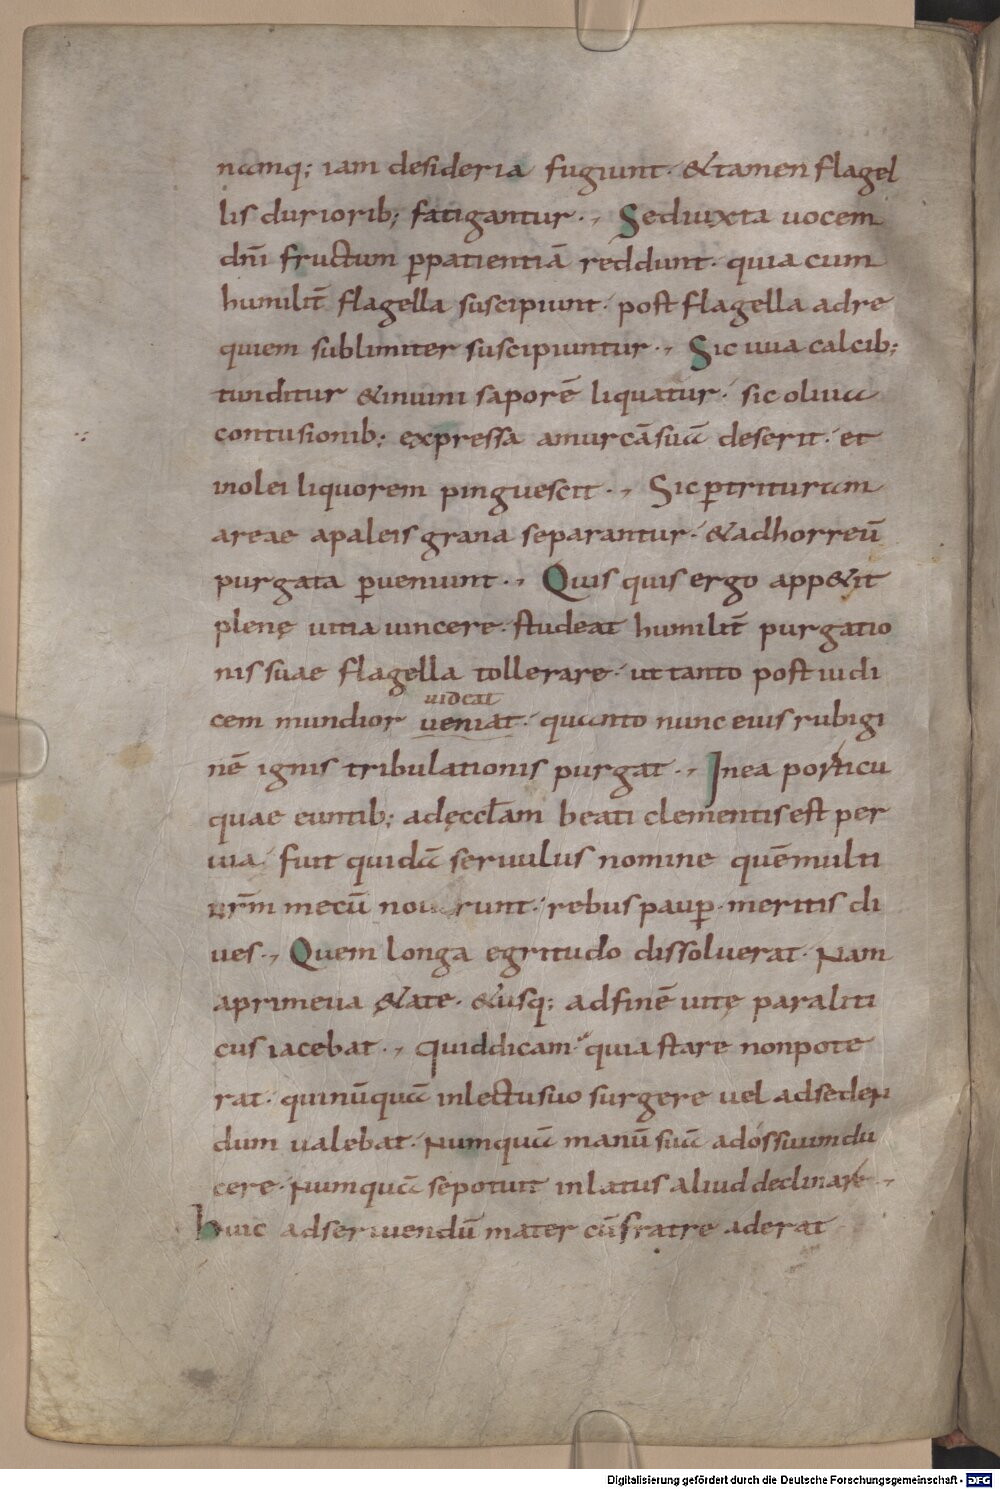 namq; iam desideria fugiunt · &tamen flagel
lis duriorib; fatigantur ·, Sed iuxta uocem
dn̄i fructum ꝑpatientiā reddunt · quia cum
humilit̄ flagella suscipiunt · post flagella adre
quiem sublimiter suscipiuntur ·, Sic uua calcib;
tunditur &inuini saporē liquatur · sic oliua
contusionib; expressa amurcāsuā deserit · et
inolei liquorem pinguescit ·, Sic ꝑtrituram
areae apaleis grana separantur · &adhorreū
purgata ꝑueniunt ·, Quis quis ergo app&it
plenę uitia uincere · studeat humilit̄ purgatio
nis suae flagella tollerare · ut tanto post iudi
uideat
cem mundior ueniat · quanto nunc eius rubigi
nē ignis tribulationis purgat ·, Inea porticu
quae euntib; adęccl̄am beati clementis est per
uia · fuit quidā seruulus nomine quēmulti
ur̄m mecū nouerunt · rebus pauꝑ · meritis di
ues ·, Quem longa egritudo dissoluerat · Nam
aprimeua &ate · &usq; adfinē uitę paraliti
cus iacebat ·, quid dicam · quia stare nonpote
rat · quinūquā inlectusuo surgere uel adseden
dum ualebat · Numquā manū suā adóssuum du
cere · Numquā sepotuit inlatus aliud declinare ·,
huic adseruiendū mater cūfratre aderat
Digitalisierung gefördert durch die Deutsche Forschungsgemeinschaft - DFG